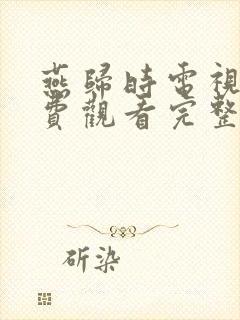 燕歸時電視
費觀看完整
斫染